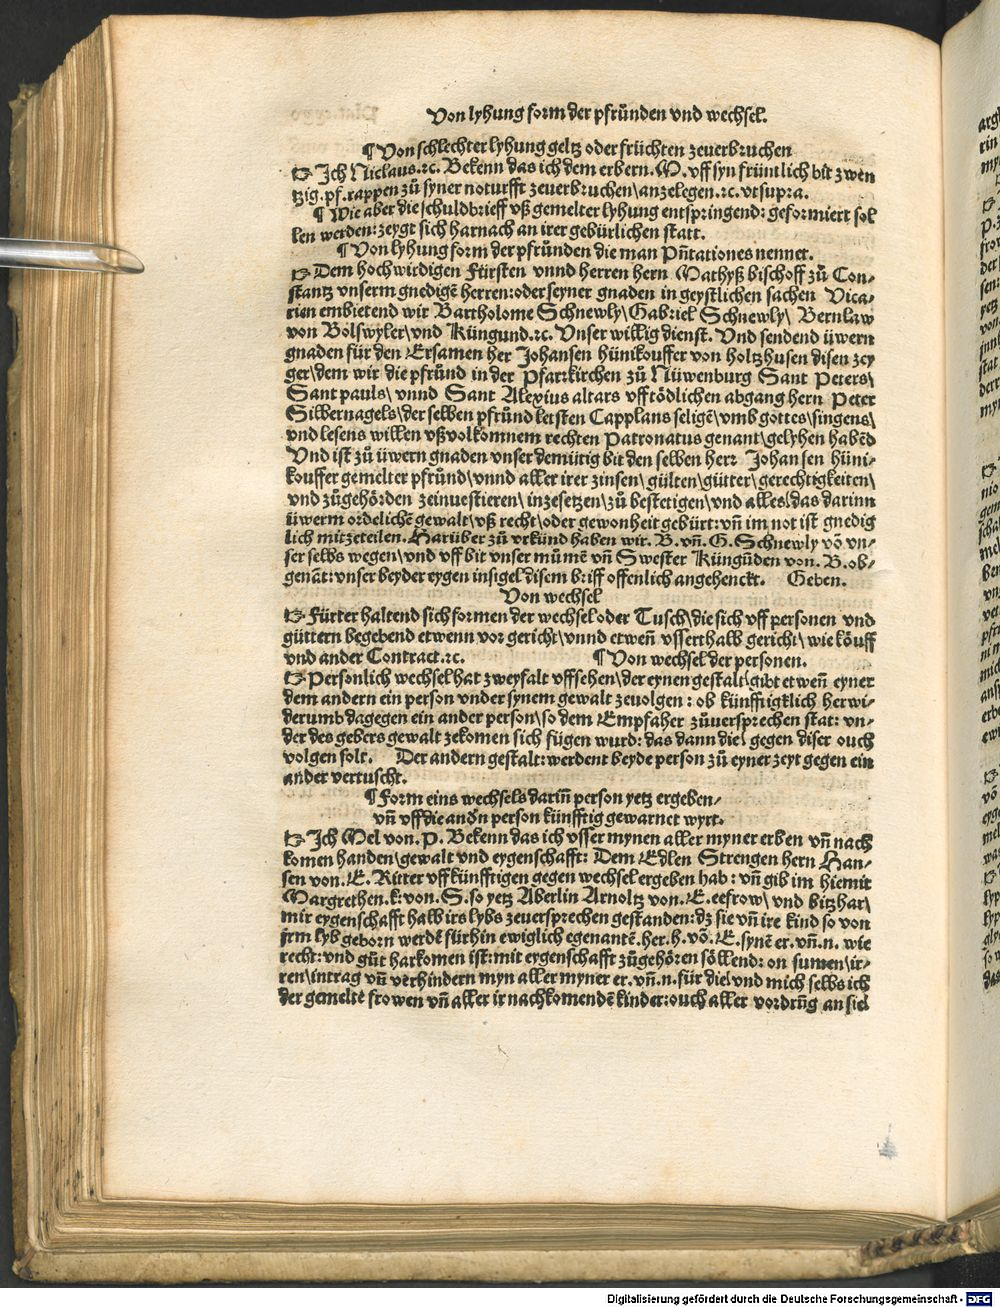 Von lyhung form der pfründen vnd wechsel.
¶ Von schlechter lyhung geltz oder früchten zeuerbruchen
☞ Ich Niclaus.ꝛc. Bekenn das ich dem erbern. M. vff syn früntlich bit zwen
tzig.pf.rappen zů syner noturfft zeuerbruchen/anzelegen.ꝛc.vtsupra.
¶ Wie aber die schuldbrieff vß gemelter lyhung entspringend: geformiert sol
len werden: zeygt sich harnach an irer gebürlichen statt.
¶ Von lyhung form der pfründen die man Pñtationes nennet.
☞ Dem hochwirdigen Fürsten vnnd herren hern Mathyß bischoff zů Con⸗
stantz vnserm gnedigẽ herren: oder seyner gnaden in geystlichen sachen Vica⸗
rien embietend wir Bartholome Schnewly/Gabriel Schnewly/ Bernlaw
von Bolswyler/vnd Küngund.ꝛc. Vnser willig dienst. Vnd sendend üwern
gnaden für den Ersamen her Johansen hünikouffer von holtzhusen disen zey
ger/dem wir die pfründ in der Pfarrkirchen zů Nüwenburg Sant Peters/
Sant pauls/ vnnd Sant Alexius altars vff tödlichen abgang hern Peter
Silbernagels/der selben pfründ letsten Capplans seligẽ/vmb gottes/singens/
vnd lesens willen vß volkomnem rechten Patronatus genant/gelyhen habẽd
Vnd ist zů üwern gnaden vnser demütig bit den selben herr Johansen hüni⸗
kouffer gemelter pfründ/vnnd aller irer zinsen/ gülten/gütter/gerechtigkeiten/
vnd zůgehörden zeinuestieren/ inzesetzen/zů bestetigen/vnd alles/das darinn
üwerm ordelichẽ gewalt/vß recht/oder gewonheit gebürt: vñ im not ist gnedig
lich mitzeteilen. Harüber zů vrkünd haben wir. B. vñ. G. Schnewly võ vn⸗
ser selbs wegen/vnd vff bit vnser můmẽ vñ Swester Küngũden von. B. ob⸗
genãt: vnser beyder eygen insigel disem brieff offenlich angehenckt. Geben.
Von wechsel
☞ Fürter haltend sich formen der wechsel oder Tusch/die sich vff personen vnd
güttern begebend etwenn vor gericht/vnnd etweñ vsserthalb gericht/ wie köuff
vnd ander Contract.ꝛc. ¶ Von wechsel der personen.
☞ Persönlich wechsel hat zweyfalt vffsehen/der eynen gestalt/gibt etweñ eyner
dem andern ein person vnder synem gewalt zeuolgen: ob künfftigklich herwi⸗
derumb dagegen ein ander person/so dem Empfaher zůuersprechen stat: vn⸗
der des gebers gewalt zekomen sich fügen wurd: das dann die/ gegen diser ouch
volgen solt. Der andern gestalt: werdent beyde person zů eyner zeyt gegen ein
ander vertuscht.
¶ Form eins wechsels dariñ person yetz ergeben⸗
vñ vff die andñ person künfftig gewarnet wyrt.
☞ Ich Mel von. P. Bekenn das ich vsser mynen aller myner erben vñ nach
komen handen/gewalt vnd eygenschafft: Dem Edlen Strengen hern Han⸗
sen von. E. Ritter vff künfftigen gegen wechsel ergeben hab: vñ gib im hiemit
Margrethen.k: von. S. so yetz Aberlin Arnoltz von. E. eefrow/ vnd bitzhar/
mir eygenschafft halb irs lybs zeuersprechen gestanden: dz sie vñ ire kind so von
jrm lyb geborn werdẽ fürhin ewiglich egenantẽ.her.h.võ. E. synẽ er.vñ.n. wie
recht: vnd gůt harkomen ist: mit eygenschafft zůgehören söllend: on sumen/ir⸗
ren/intrag vñ verhindern myn aller myner er. vñ.n. für die/ vnd mich selbs ich
der gemeltẽ frowen vñ aller ir nachkomendẽ kinder: ouch aller vordrũg an sie/
Digitalisierung gefördert durch die Deutsche Forschungsgemeinschaft - DFG